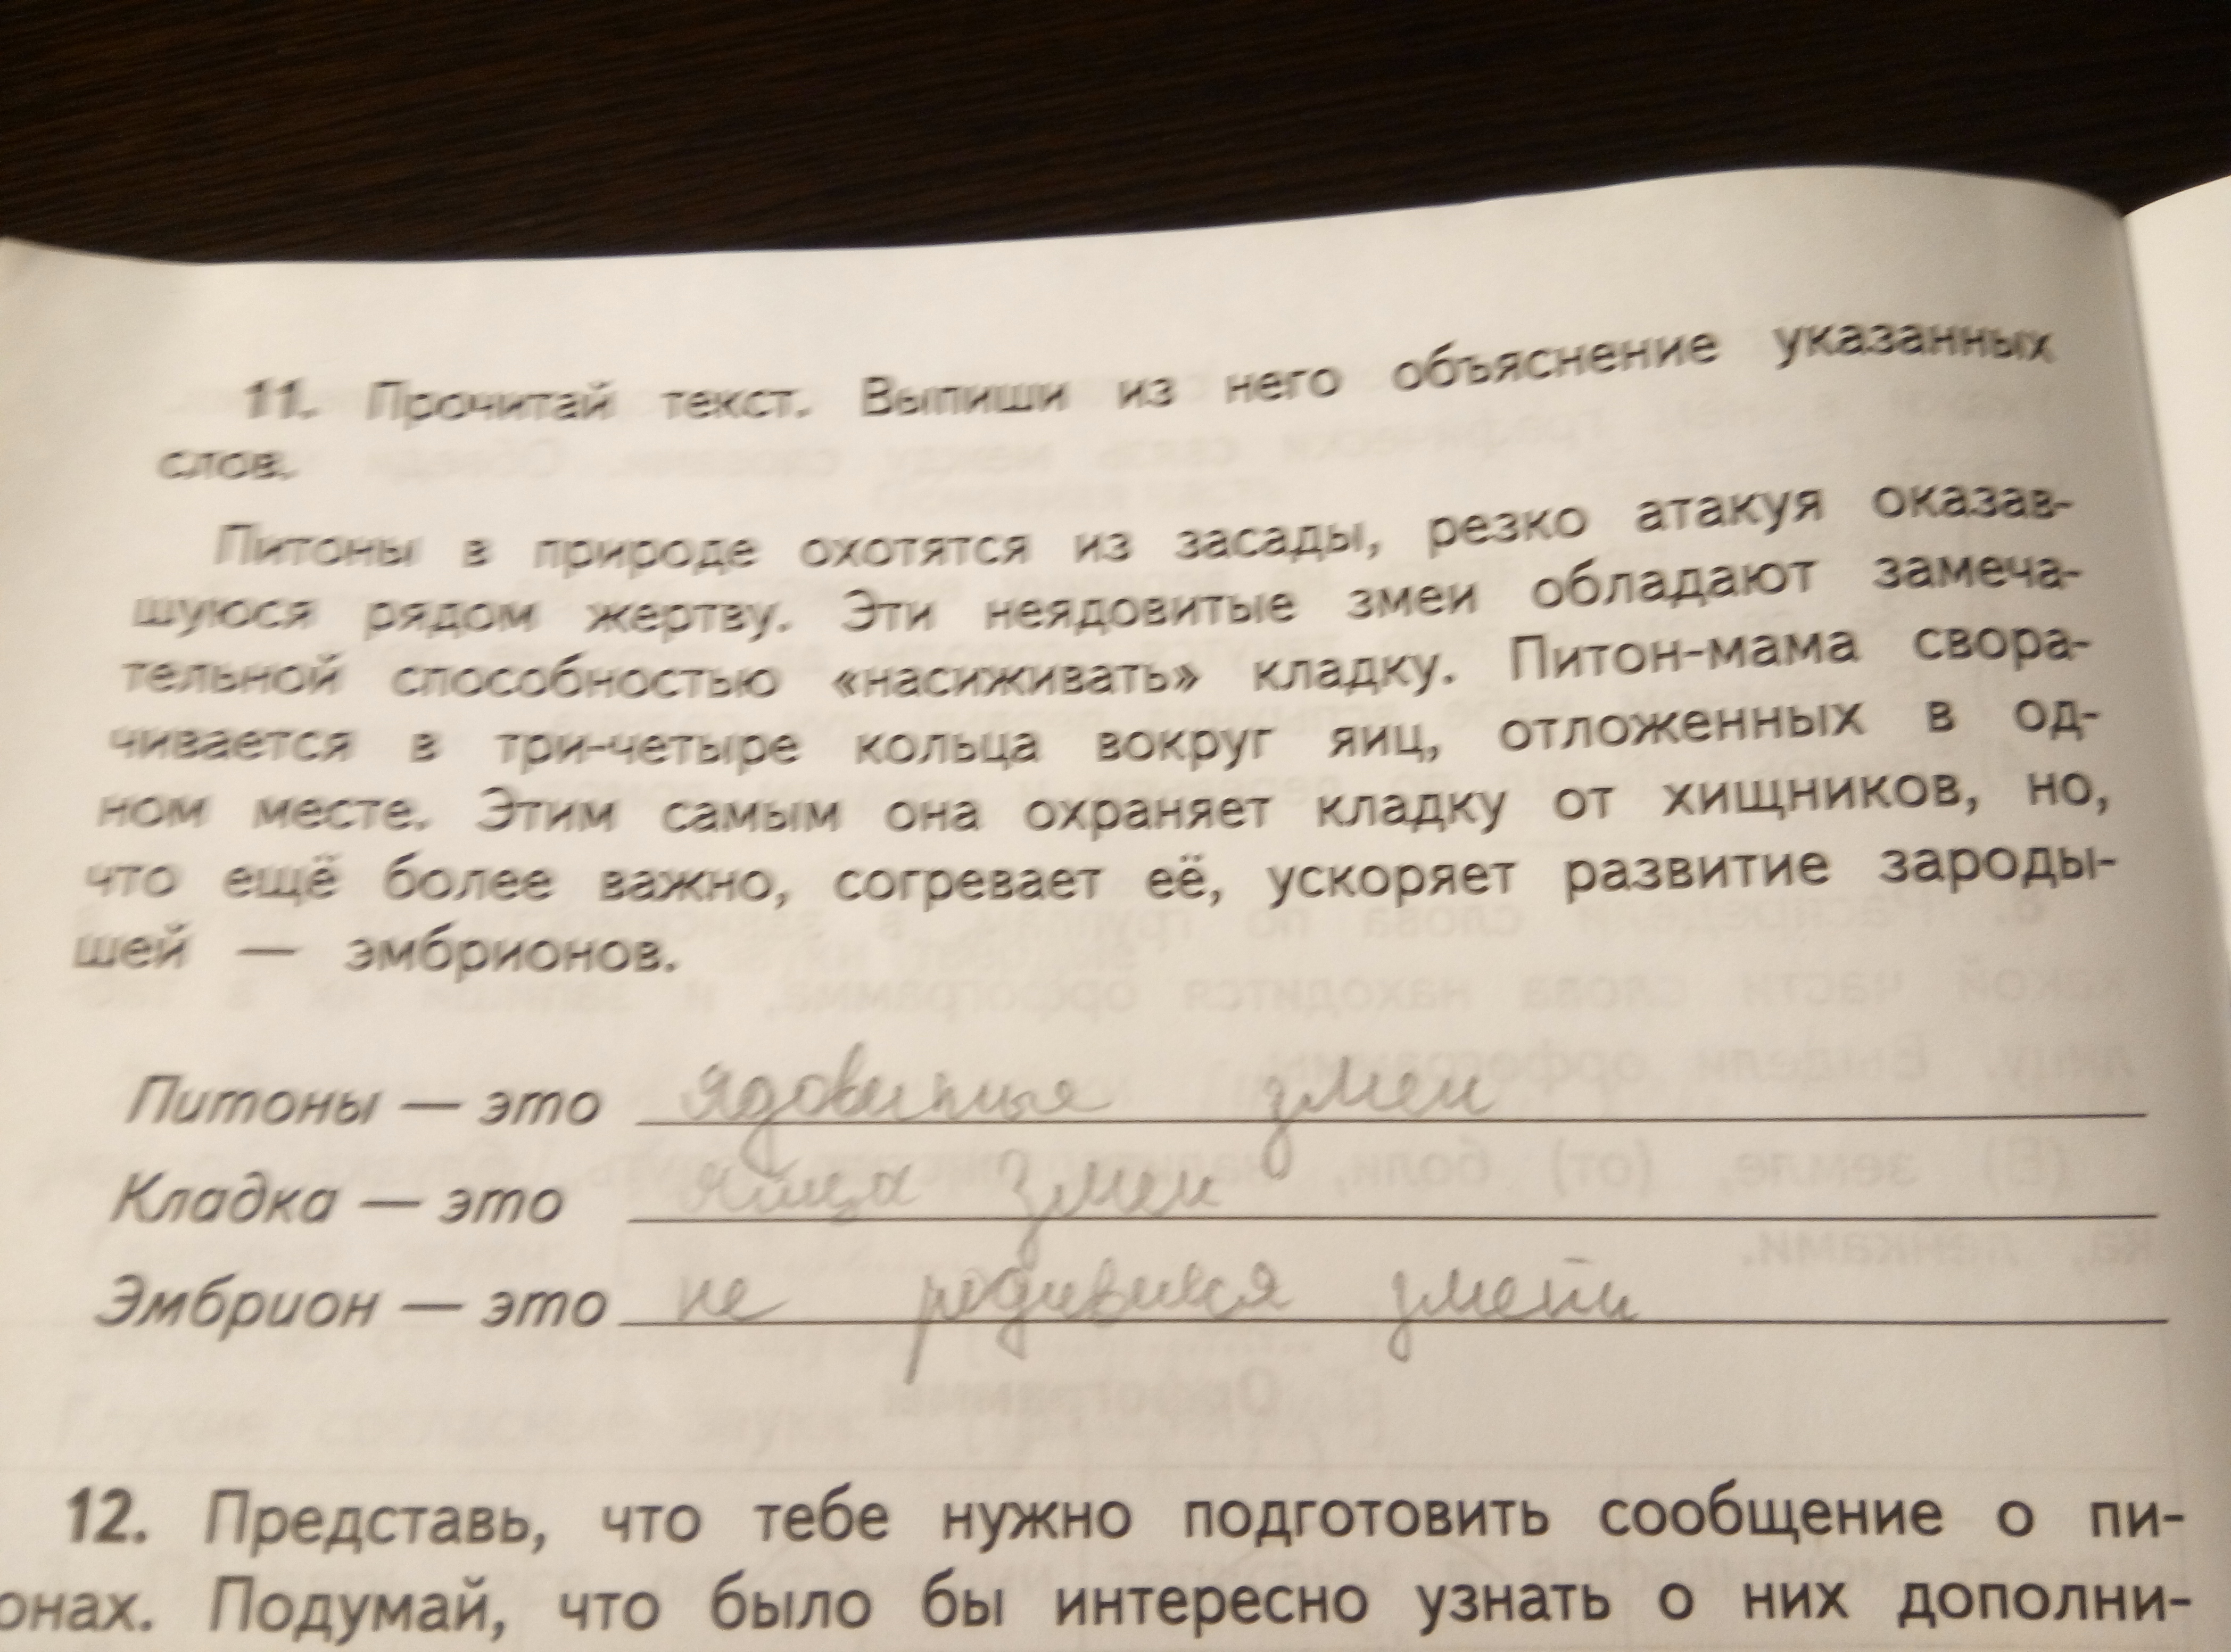 11. Прочитай текст. Выпиши из него объяснение указанных
слов.
Питоны в природе охотятся из засады, резко атакуя оказав-
шуюся рядом жертву. Эти неядовитые змеи обладают замеча-
тельной способностью «насиживать» кладку. Питон-мама свора-
чивается в три-четыре кольца вокруг яиц, отложенных в од-
ном месте. Этим самым она охраняет кладку от хищников, но,
что ещё более важно, согревает её, ускоряет развитие зароды-
шей — эмбрионов.
Питоны — это ядовитые змеи
Кладка — это яйца змеи
Эмбрион — это не родившися
12. Представь, что тебе нужно подготовить сообщение о пи-
онах. Подумай, что было бы интересно узнать о них дополни-